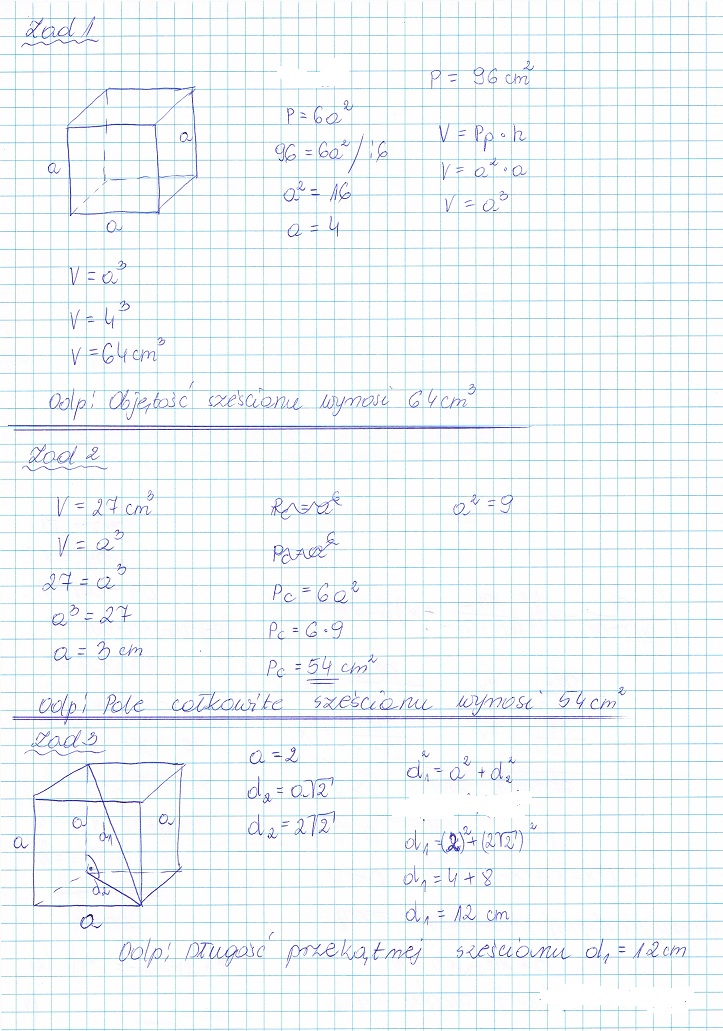 Zad 1
P = 96 cm²
P = 6a²
96 = 6a² / :6
a² = 16
a = 4
V = Pp · h
V = a² · a
V = a³
a
a
a
V = a³
V = 4³
V = 64 cm³
Odp: Objętość sześcianu wynosi 64 cm³
Zad 2
V = 27 cm³
V = a³
27 = a³
a³ = 27
a = 3 cm
Pc = 6a²
Pc = 6 · 9
Pc = 54 cm²
a² = 9
Odp: Pole całkowite sześcianu wynosi 54 cm²
Zad 3
a
a
d₁
a
d₂
a
a = 2
d₂ = a√2
d₂ = 2√2
d₁² = a² + d₂²
d₁ = (2)² + (2√2)²
d₁ = 4 + 8
d₁ = 12 cm
Odp: Długość przekątnej sześcianu d₁ = 12 cm